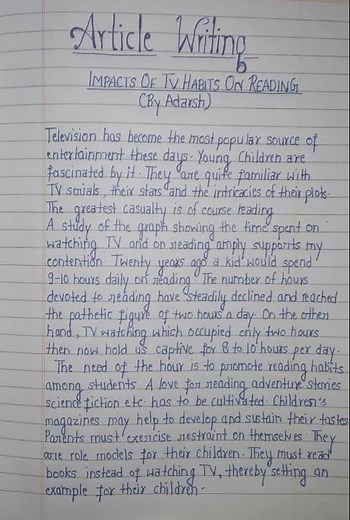 Article Writing
IMPACTS OF TV HABITS ON READING
(By Adarsh)
Television has become the most popular source of
entertainment these days. Young Children are
fascinated by it. They are quite familiar with
TV serials, their stars and the intricacies of their plots.
The greatest casualty is of course reading.
A study of the graph showing the time spent on
watching TV and on reading amply supports my
contention. Twenty years ago a kid would spend
9-10 hours daily on reading. The number of hours
devoted to reading have steadily declined and reached
the pathetic figure of two hours a day. On the other
hand, TV watching which occupied only two hours
then now hold us captive for 8 to 10 hours per day.
The need of the hour is to promote reading habits
among students. A love for reading adventure stories
science fiction etc. has to be cultivated. Children's
magazines may help to develop and sustain their tastes
Parents must exercise restraint on themselves. They
are role models for their children. They must read
books instead of watching TV, thereby setting an
example for their children.